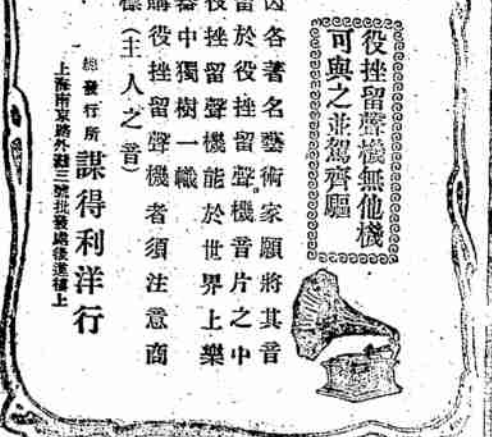 役挫留聲機無他機
可與之並駕齊驅
因各著名藝術家願將其音
留於役挫留聲機音片之中
役挫留聲機能於世界上樂
器中獨樹一幟
購役挫留聲機者須注意商
標(主人之音)
總發行所 謀得利洋行
上海南京路外灘三號批發處後進樓上